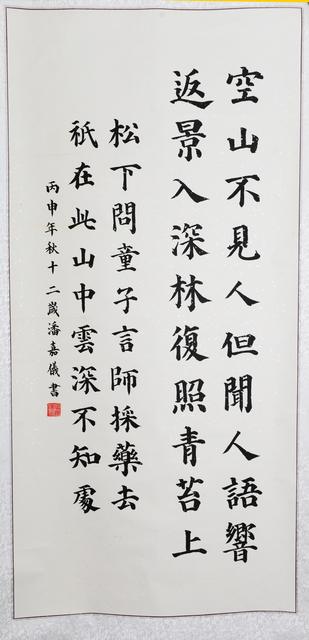 空山不見人但聞人語響
返景入深林復照青苔上
松下問童子言師採藥去
祇在此山中雲深不知處
丙申年秋十二歲潘嘉儀書